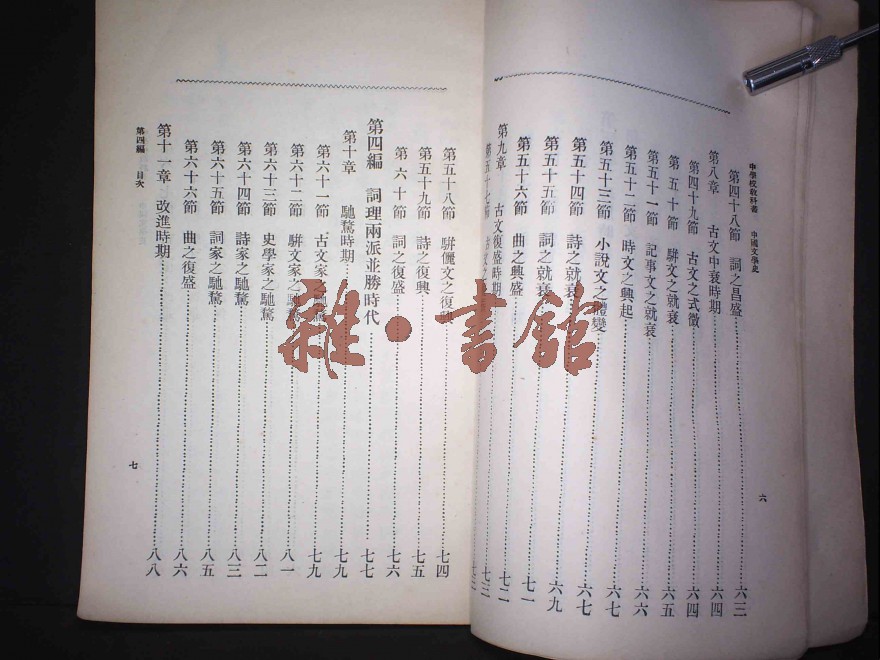 中學校敎科書 中國文學史
第四十八節 詞之昌盛 六三
第八章 古文中衰時期 六四
第四十九節 古文之式微 六四
第五十節 駢文之就衰 六五
第五十一節 記事文之就衰 六六
第五十二節 時文之興起 六七
第五十三節 小說文之體變 六七
第五十四節 詩之就衰 六九
第五十五節 詞之就衰
第五十六節 曲之興盛 七一
第九章 古文復盛時期 七二
第五十七節
六
第五十八節 駢儷文之復興 七四
第五十九節 詩之復興 七五
第六十節 詞之復盛 七六
第四編 詞理兩派並勝時代 七七
第十章 馳騖時期 七九
第六十一節 古文家之馳騖 七九
第六十二節 駢文家之馳騖 八一
第六十三節 史學家之馳騖 八二
第六十四節 詩家之馳騖 八三
第六十五節 詞家之馳騖 八五
第六十六節 曲之復盛 八六
第十一章 改進時期 八八
第四編 目次
七
雜·書館